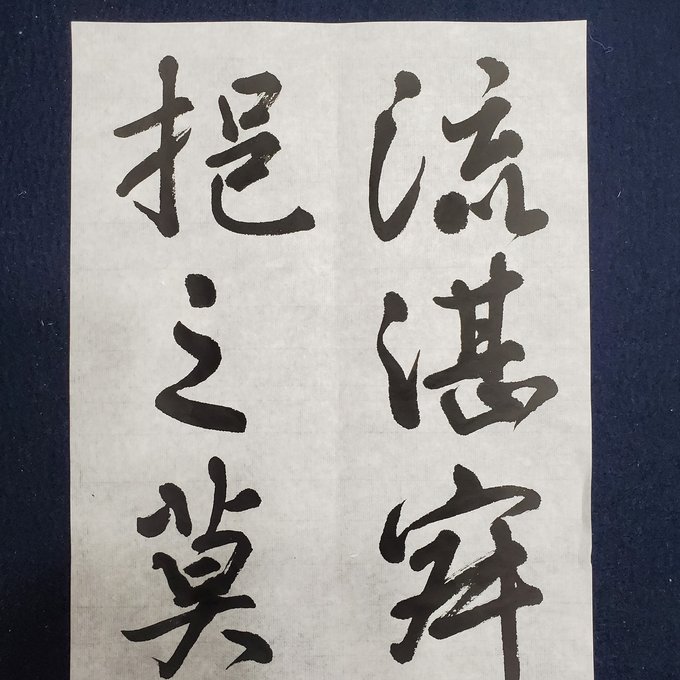 流湛寂
挹之莫